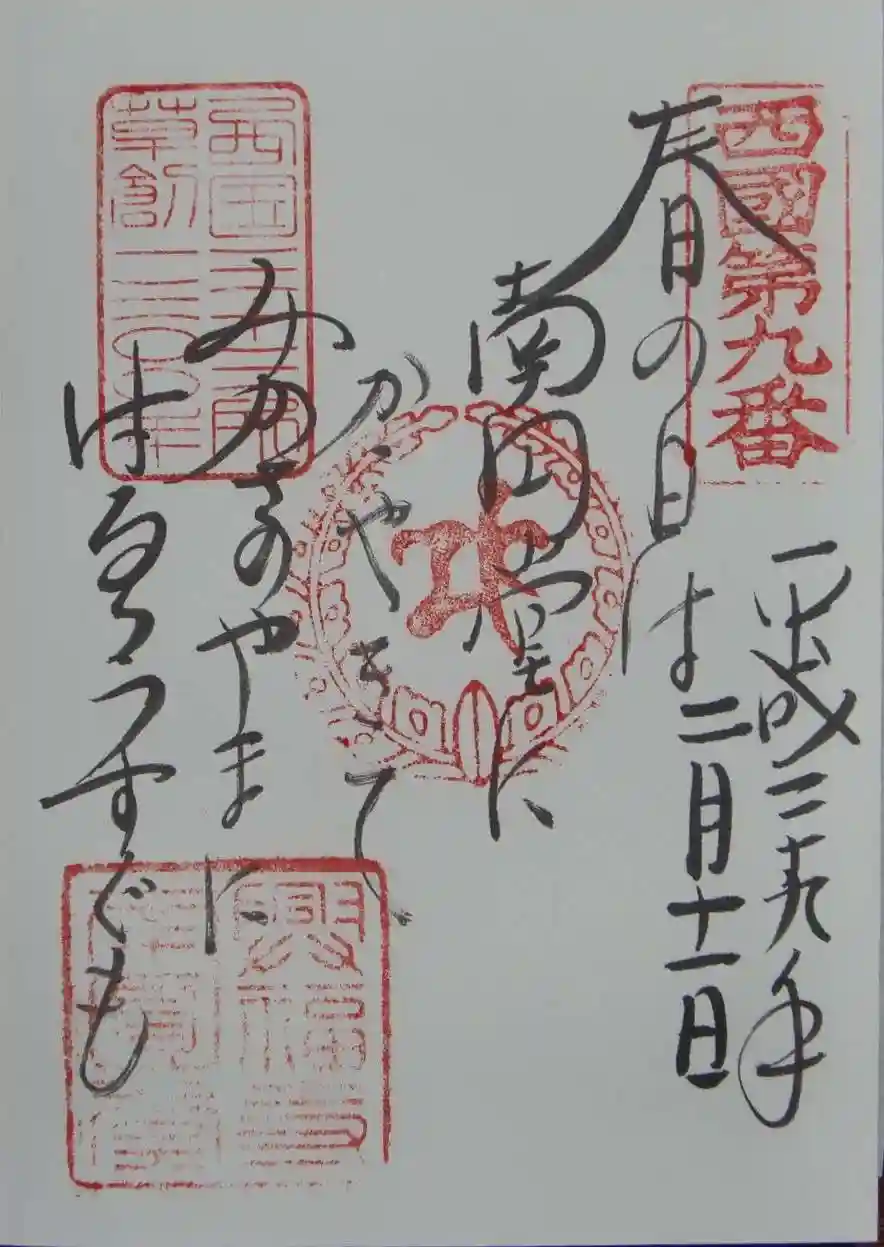 西國第九番
平成二十九年
二月十一日
春の日は
南円堂に
かゝやきて
みかさのやまに
はるゝうすぐも
西国三十三所
草創一三〇〇年
興福寺